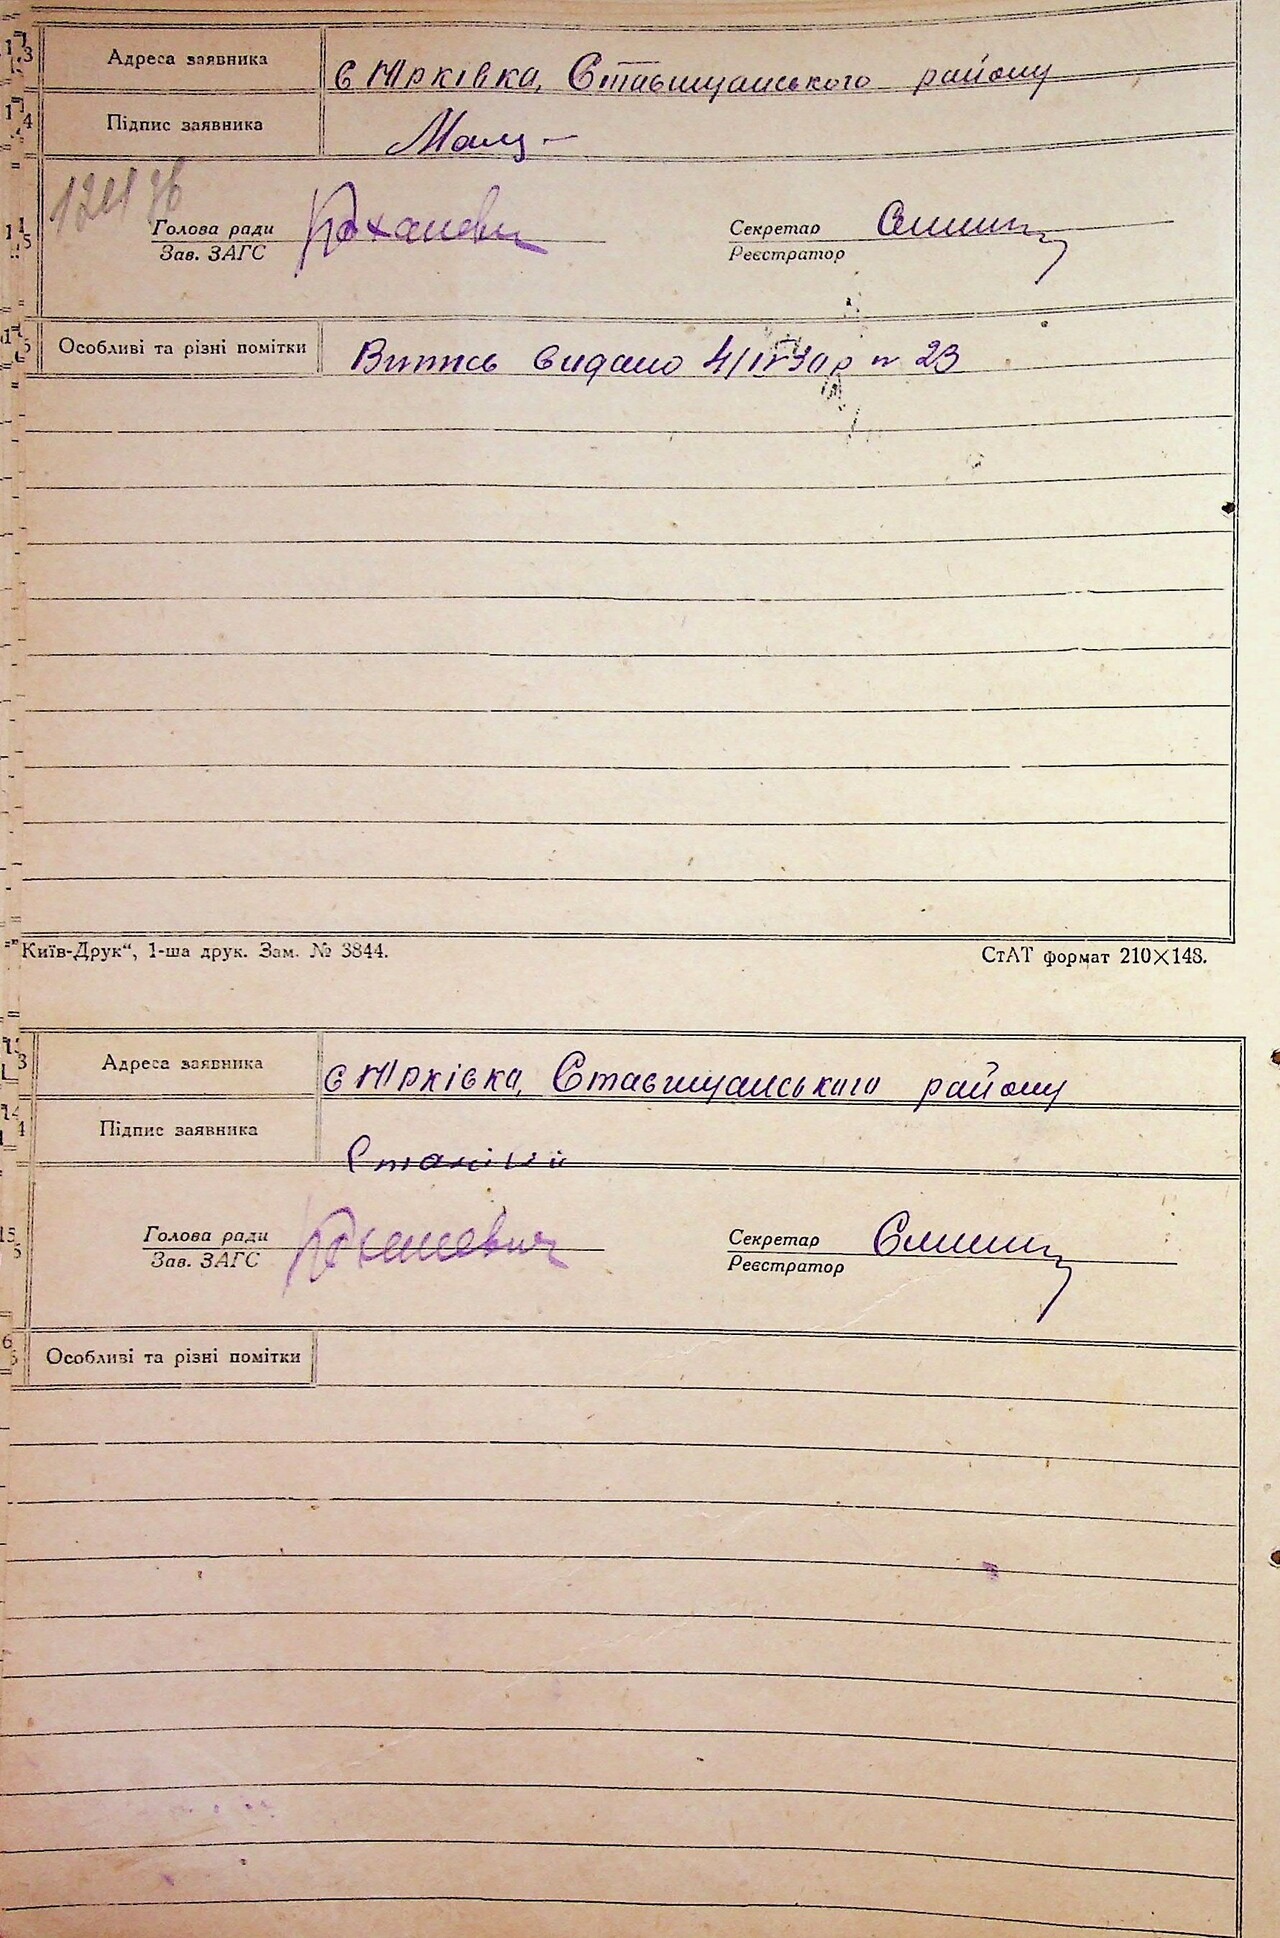 13
Адреса заявника
с Юрківка, Ставищанського району
14
Підпис заявника
Голова ради
Зав. ЗАГС
Секретар
Реєстратор
15
Особливі та різні помітки
Витпсь видано 4/IV 30 р № 23
"Київ-Друк“, 1-ша друк. Зам. № 3844.
СтАТ формат 210×148.
13
Адреса заявника
с Юрківка, Ставищанського району
14
Підпис заявника
Голова ради
Зав. ЗАГС
Коханевич
Секретар
Реєстратор
15
Особливі та різні помітки